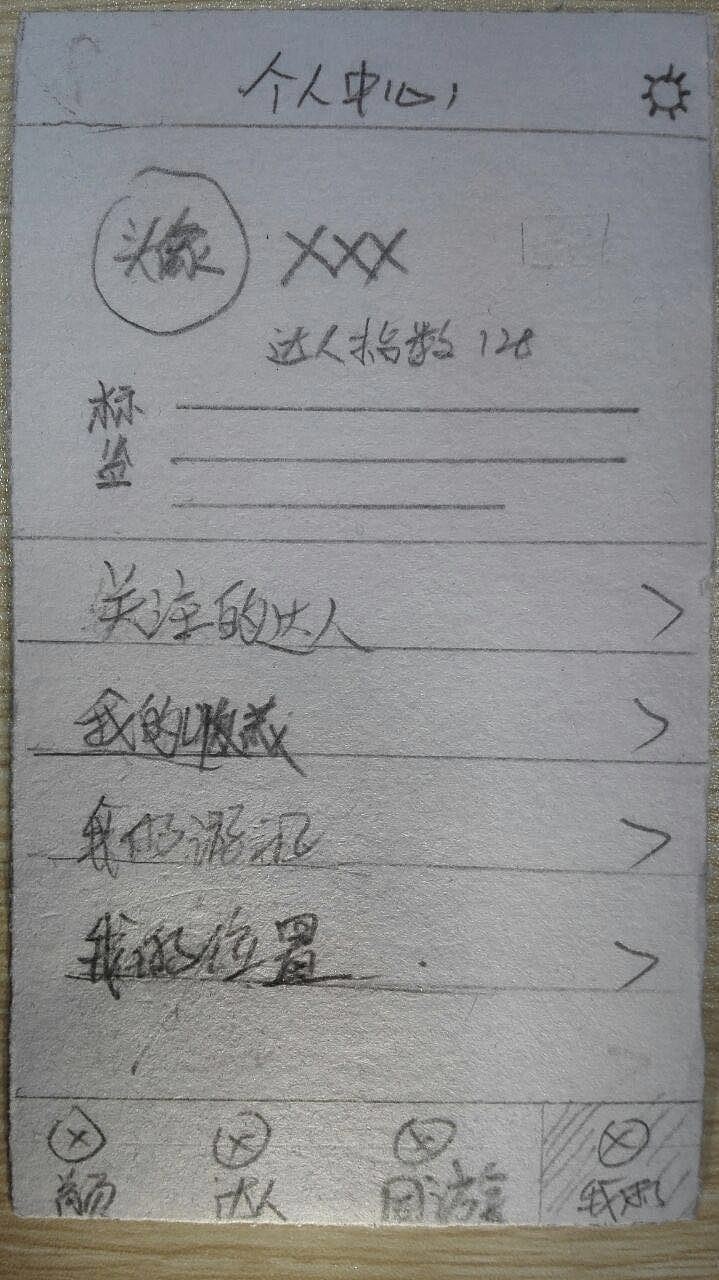 个人中心
头像 XXX
达人指数 128
标签
关注的达人
我的收藏
我的游记
我的位置
首页 达人 周游 我的